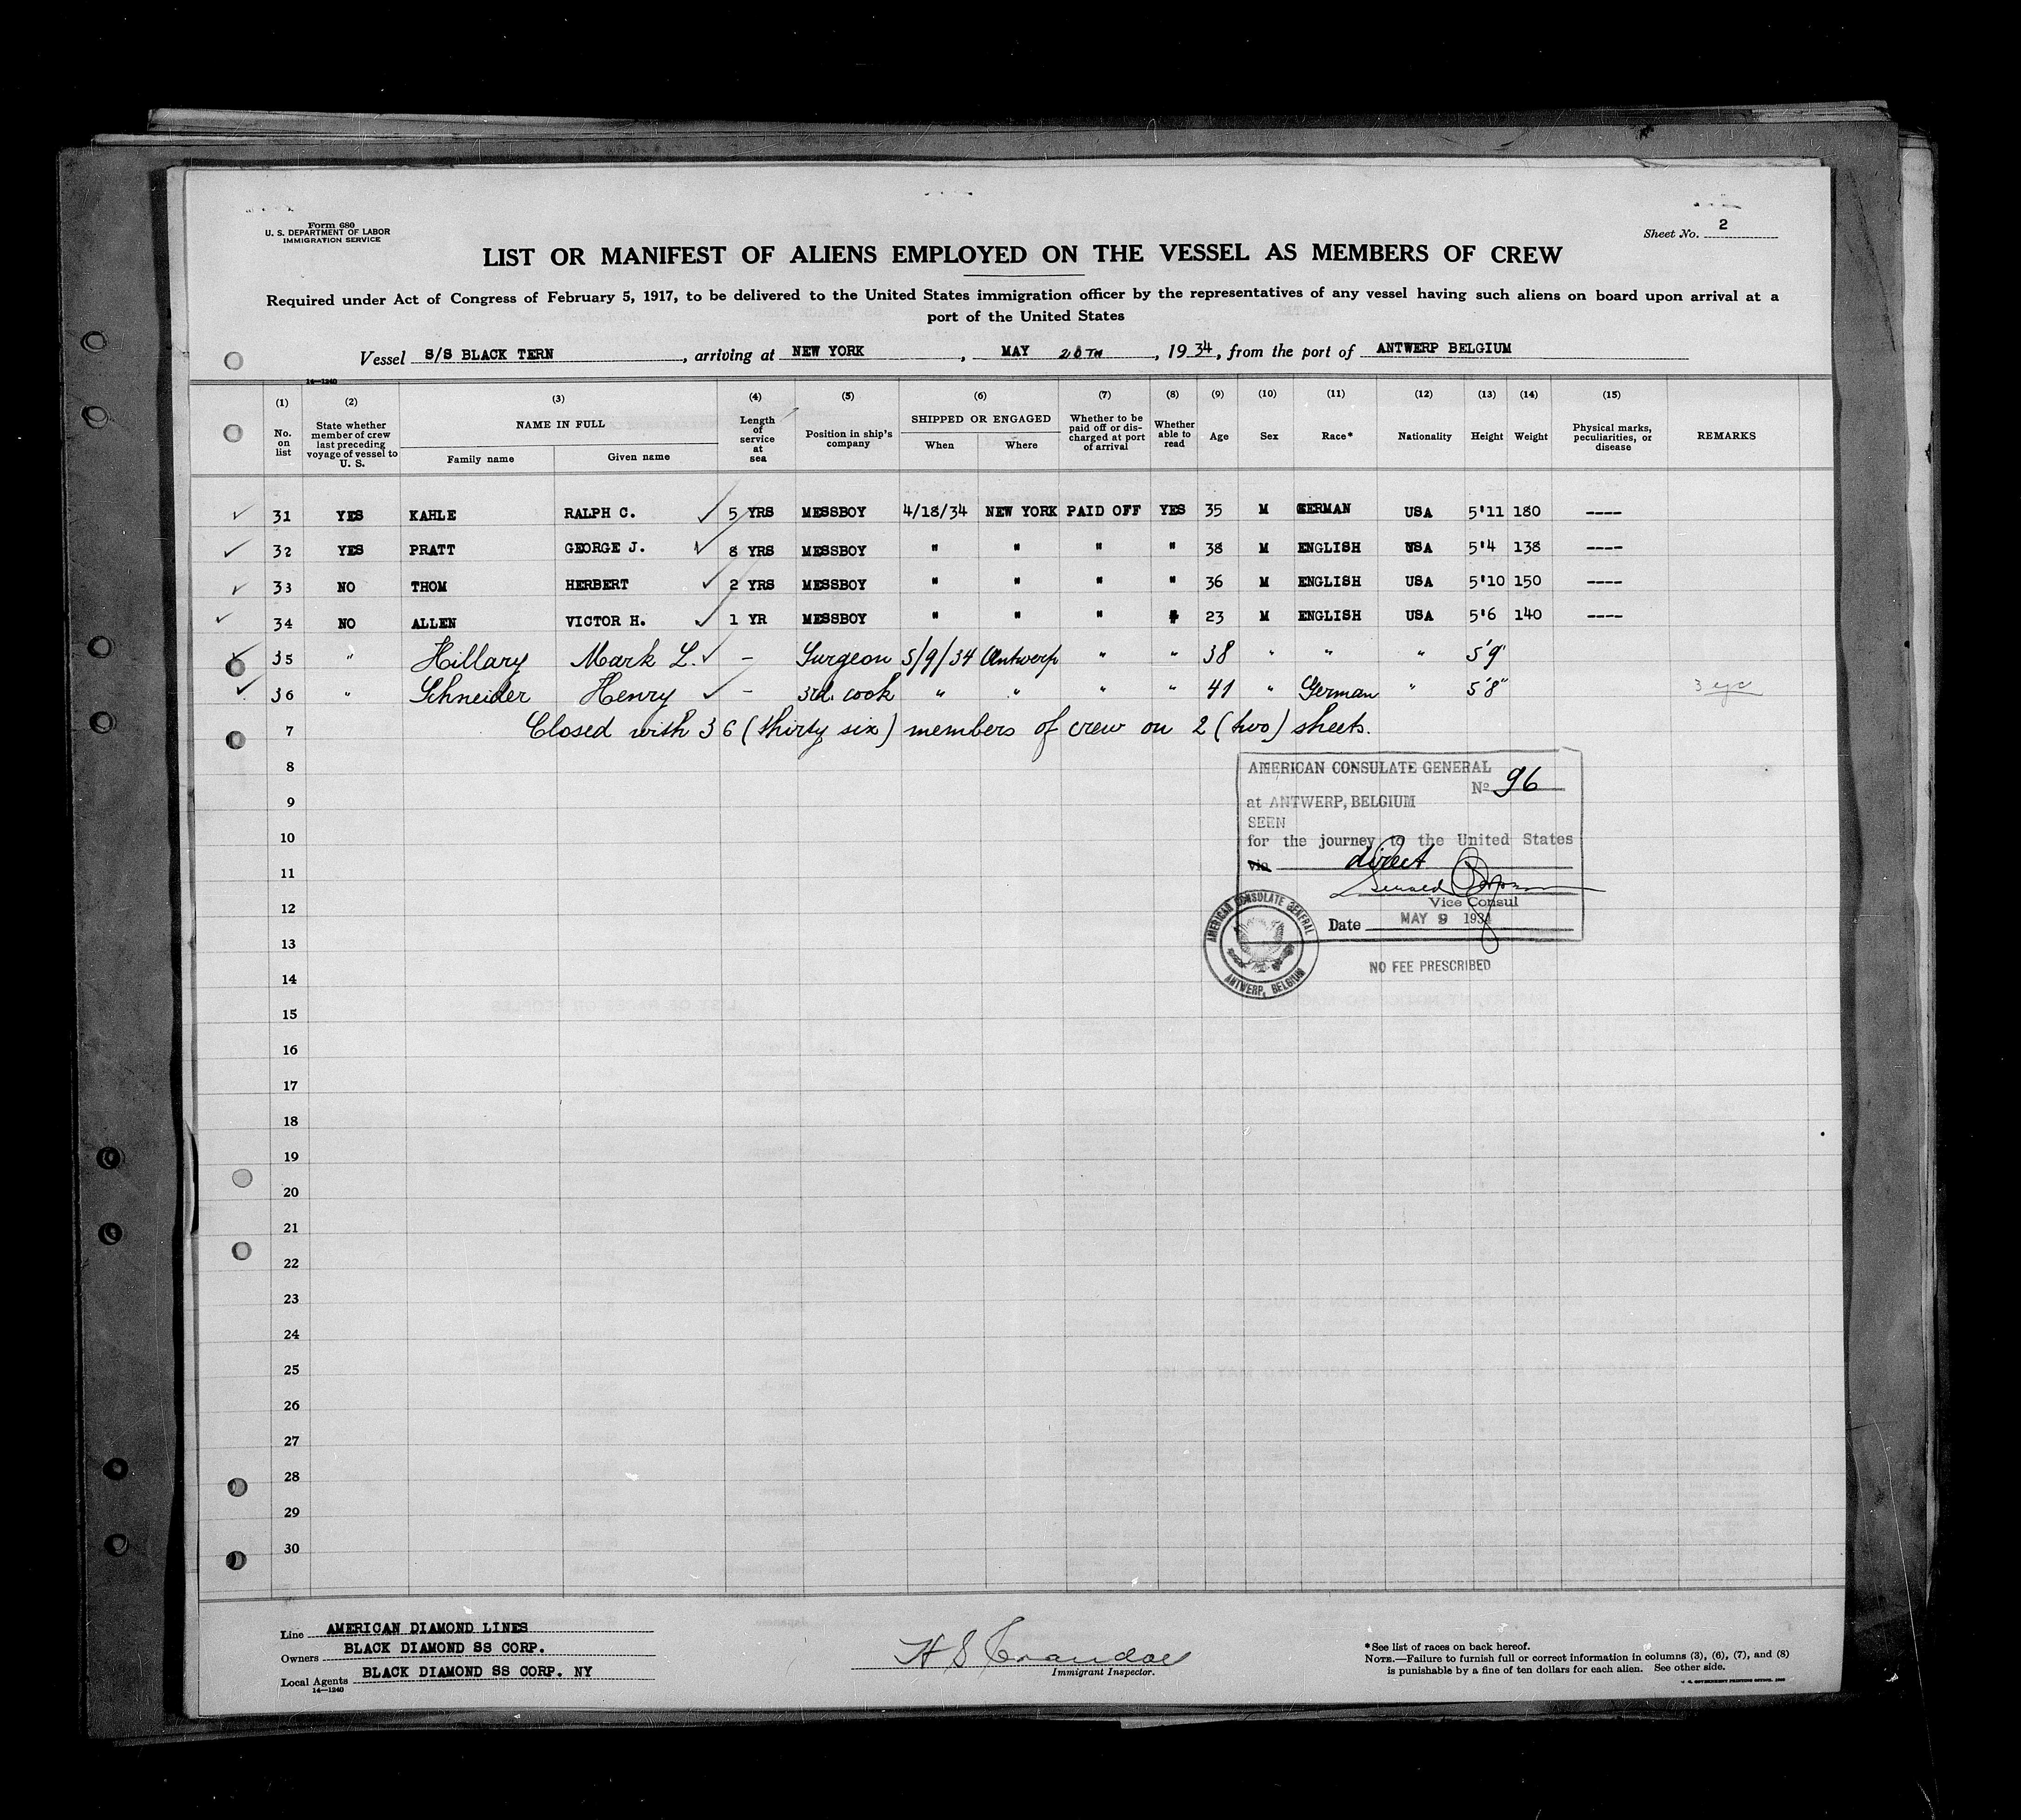 Form 680
U. S. DEPARTMENT OF LABOR
IMMIGRATION SERVICE
Sheet No. 2
LIST OR MANIFEST OF ALIENS EMPLOYED ON THE VESSEL AS MEMBERS OF CREW
Required under Act of Congress of February 5, 1917, to be delivered to the United States immigration officer by the representatives of any vessel having such aliens on board upon arrival at a
port of the United States
Vessel S/S BLACK TERN, arriving at NEW YORK, MAY 20TH, 1934, from the port of ANTWERP BELGIUM
14—1240
(1) (2) (3) (4) (5) (6) (7) (8) (9) (10) (11) (12) (13) (14) (15)
No. on list
State whether member of crew last preceding voyage of vessel to U. S.
NAME IN FULL
Family name
Given name
Length of service at sea
Position in ship's company
SHIPPED OR ENGAGED
When
Where
Whether to be paid off or discharged at port of arrival
Whether able to read
Age
Sex
Race*
Nationality
Height
Weight
Physical marks, peculiarities, or disease
REMARKS
31 YES KAHLE RALPH C. 5 YRS MESSBOY 4/18/34 NEW YORK PAID OFF YES 35 M GERMAN USA 5'11 180 ----
32 YES PRATT GEORGE J. 8 YRS MESSBOY " " " " 38 M ENGLISH USA 5'4 138 ----
33 NO THOM HERBERT 2 YRS MESSBOY " " " " 36 M ENGLISH USA 5'10 150 ----
34 NO ALLEN VICTOR H. 1 YR MESSBOY " " " " 23 M ENGLISH USA 5'6 140 ----
35 " Hillary Mark L. - Surgeon 5/9/34 Antwerp " " 38 " " " 5'9"
36 " Schneider Henry - 3rd. cook " " " " 41 " German " 5'8"
7 Closed with 36 (thirty six) members of crew on 2 (two) sheets.
8
9
10
11
12
13
14
15
16
17
18
19
20
21
22
23
24
25
26
27
28
29
30
AMERICAN CONSULATE GENERAL
No 96
at ANTWERP, BELGIUM
SEEN
for the journey to the United States
via direct
Vice Consul
Date MAY 9 1934
AMERICAN CONSULATE GENERAL
ANTWERP, BELGIUM
NO FEE PRESCRIBED
Line AMERICAN DIAMOND LINES
Owners BLACK DIAMOND SS CORP.
Local Agents BLACK DIAMOND SS CORP. NY
14—1240
H S Crandall
Immigrant Inspector.
*See list of races on back hereof.
NOTE.—Failure to furnish full or correct information in columns (3), (6), (7), and (8)
is punishable by a fine of ten dollars for each alien. See other side.